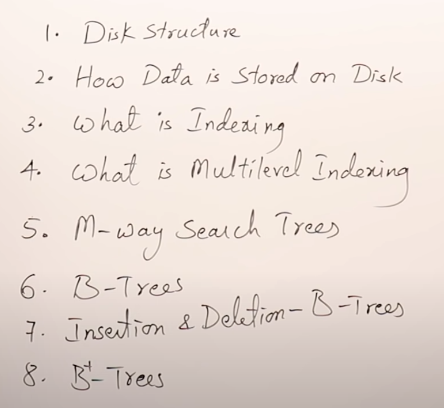 1. Disk Structure
2. How Data is Stored on Disk
3. What is Indexing
4. What is Multilevel Indexing
5. M-way Search Trees
6. B-Trees
7. Insertion & Deletion - B-Trees
8. B+-Trees